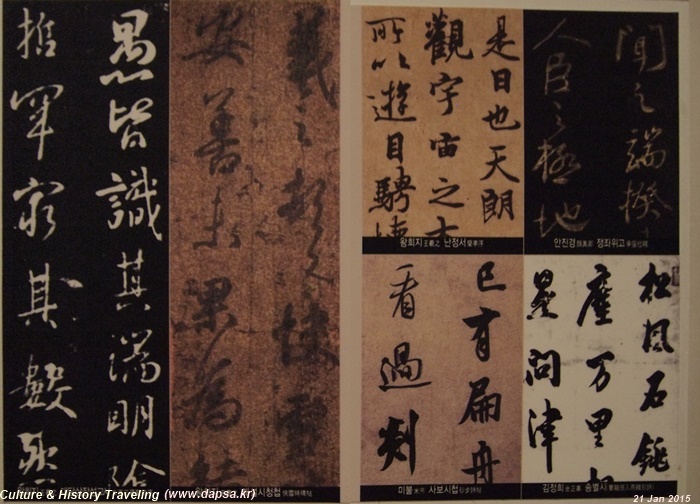 愚皆識其端明陰
哲罕窮其數然
羲之頓首快雪
安善未果為結
是日也天朗
觀宇宙之大
所以遊目騁懷
왕희지王羲之 난정서蘭亭序
聞之端揆
人臣之極地
안진경顔眞卿 정좌위고爭座位稿
已有扁舟
看過剡
미불米芾 사보시첩
松風石銚
塵万里
星問津
김정희 송별시
Culture & History Traveling (www.dapsa.kr)
21 Jan 2015